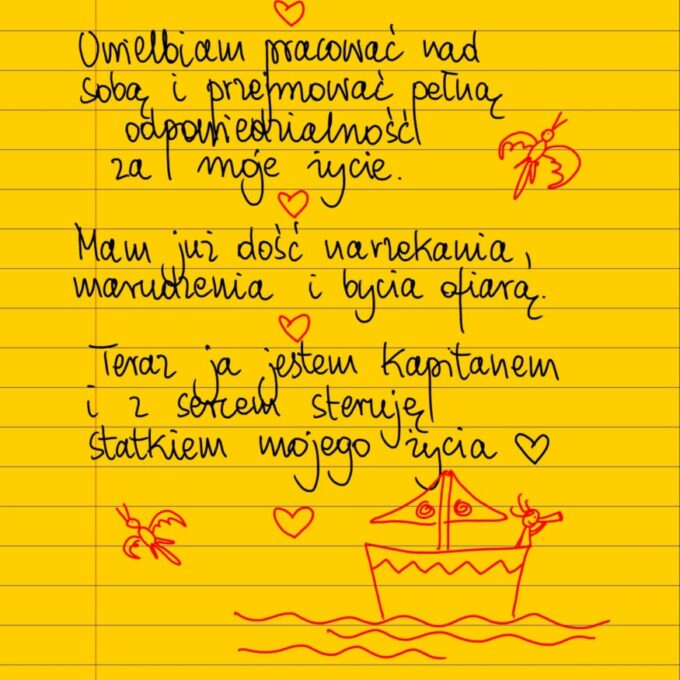 Uwielbiam pracować nad
sobą i przejmować pełną
odpowiedzialność
za moje życie.
Mam już dość narzekania,
marudzenia i bycia ofiarą.
Teraz ja jestem kapitanem
i z sercem steruję
statkiem mojego życia ♡